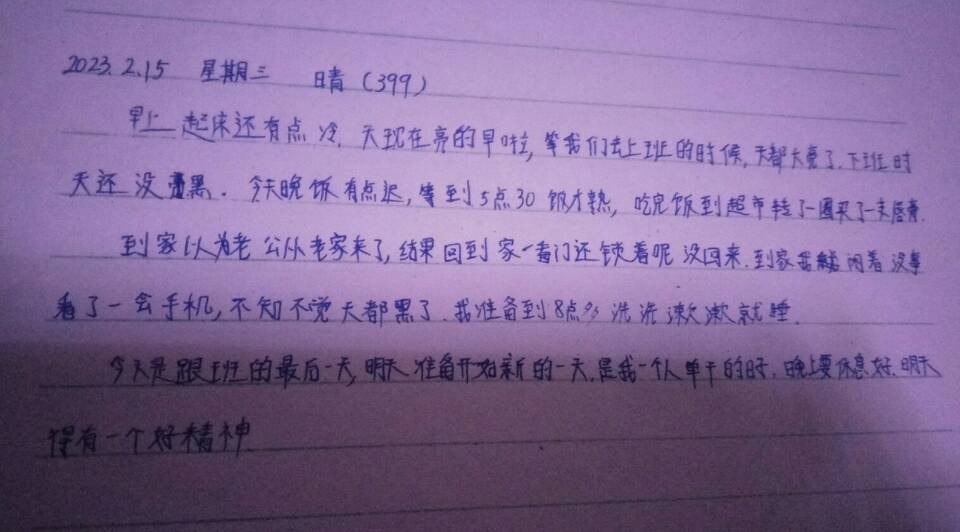 2023.2.15 星期三 晴（399）
早上起床还有点冷.天现在亮的早啦,等我们去上班的时候,天都大亮了.下班时
天还没黑.今天晚饭有点迟,等到5点30饭才熟,吃完饭到超市转了一圈买了一支唇膏.
到家以为老公从老家来了,结果回到家一看门还锁着呢没回来.到家我闲着没事
看了一会手机,不知不觉天都黑了.我准备到8点多洗洗漱漱就睡.
今天是跟班的最后一天,明天准备开始新的一天.是我一个人单干的时.晚上要休息好.明天
得有一个好精神.